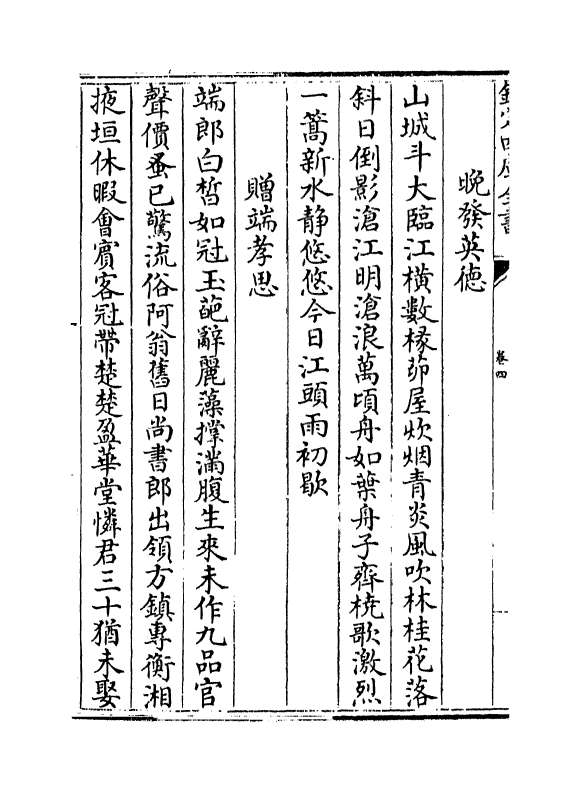 欽定四庫全書
卷四
晚發英德
山城斗大臨江橫數椽茆屋炊烟青炎風吹林桂花落
斜日倒影滄江明滄浪萬頃舟如葉舟子齊橈歌激烈
一篙新水静悠悠今日江頭雨初歇
贈端孝思
端郎白皙如冠玉葩辭麗藻撑滿腹生來未作九品官
聲價蚤已驚流俗阿翁舊日尚書郎出領方鎮專衡湘
掖垣休暇會賓客冠帶楚楚盈華堂憐君三十猶未娶